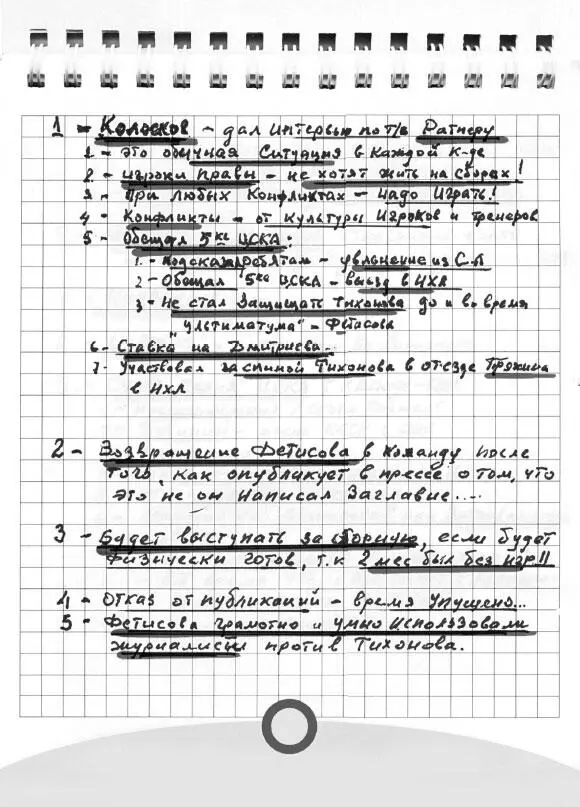 1 - Колосков - дал интервью по т/в Ратнеру
1 - это обычная ситуация в каждой к-де
2 - игроки правы - не хотят жить на сборах!
3 - При любых конфликтах - надо играть!
4 - Конфликты - от культуры игроков и тренеров
5 - Обещал 5ке ЦСКА:
1. - подсказ. ребятам - увльнение из С.А
2 - Обещал 5ке ЦСКА - выезд в НХЛ
3 - Не стал защищать Тихонова до и во время
"ультиматума" - Фетисова
6 - Ставка на Дмитриева.
7 - Участвовал за спиной Тихонова в отъезде Пряхина
в НХЛ
2 - Возвращение Фетисова в команду после
того, как опубликует в прессе о том, что
это не он написал заглавие....
3 - Будет выступать за сборную, если будет
физически готов, т.к 2 мес был без игр!!
4 - Отказ от публикаций - время упущено...
5 - Фетисова грамотно и умно использовали
журналисты против Тихонова.